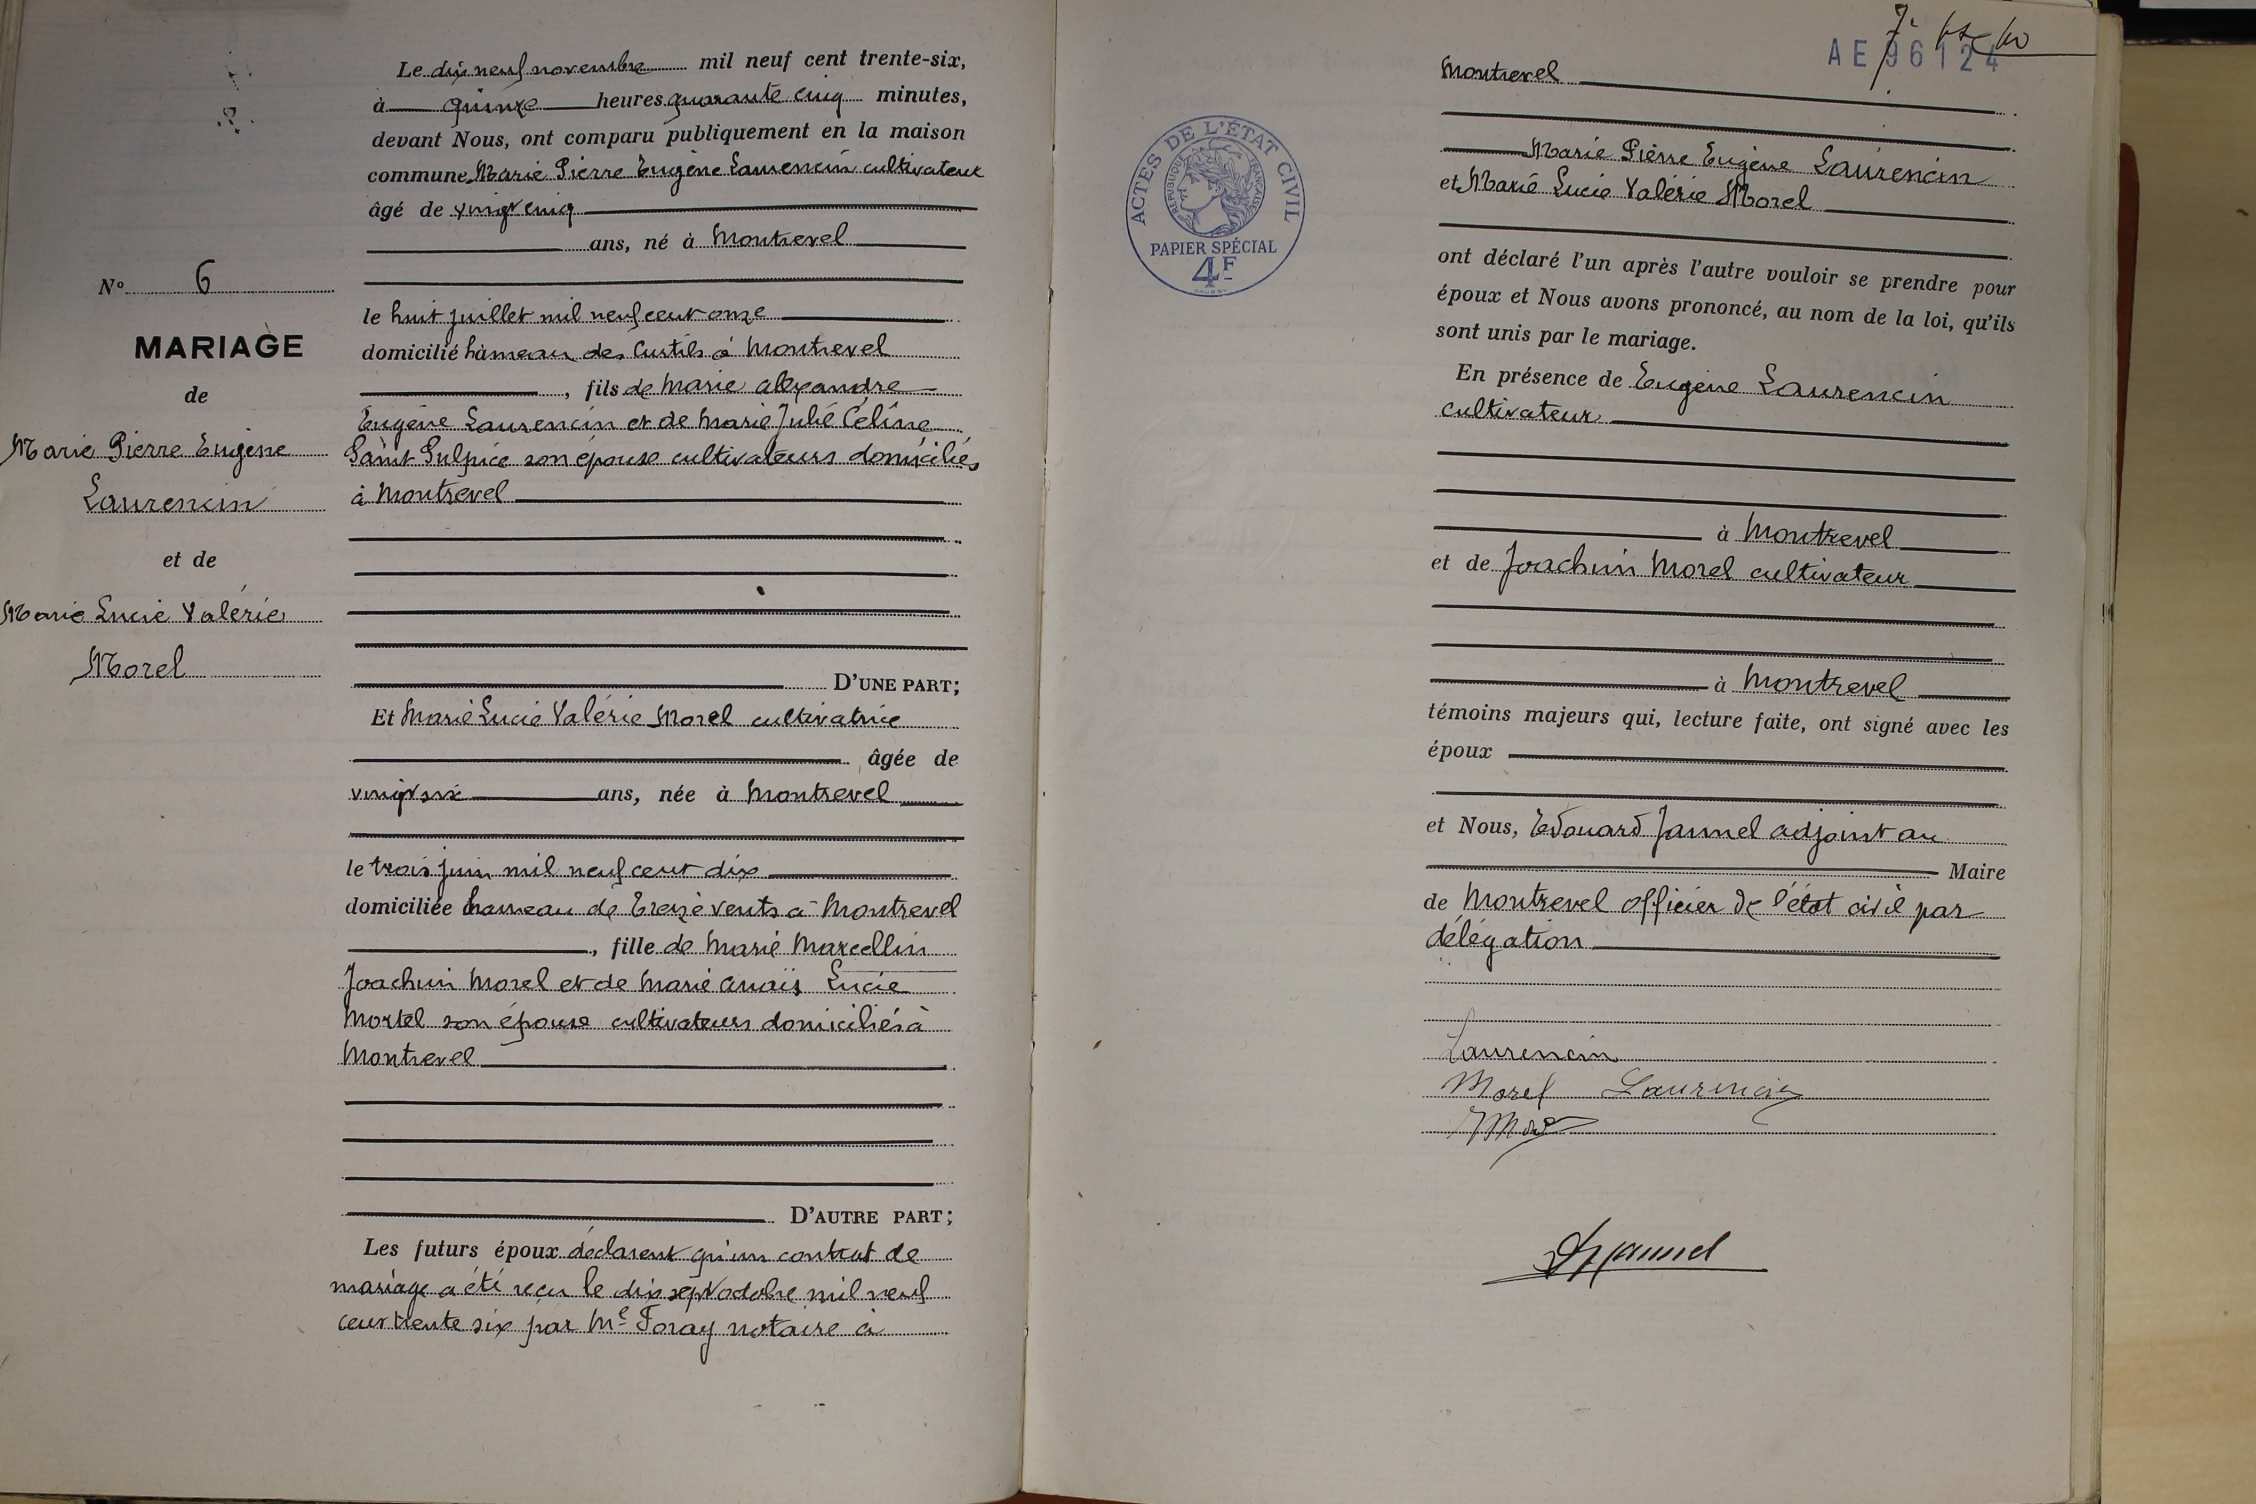 Le dix neuf novembre mil neuf cent trente-six,
à quinze heures quarante cinq minutes,
devant Nous, ont comparu publiquement en la maison
commune Marie Pierre Eugène Laurencin cultivateur
âgé de vingt cinq
ans, né à Montrevel
le huit juillet mil neuf cent onze
domicilié hameau des Cutils à Montrevel
, fils de Marie Alexandre
Eugène Laurencin et de Marie Julie Céline
Saint Sulpice son épouse cultivateurs domiciliés
à Montrevel
D'UNE PART;
Et Marie Lucie Valérie Morel cultivatrice
âgée de
vingt six ans, née à Montrevel
le trois juin mil neuf cent dix
domiciliée hameau de Treize vents à Montrevel
, fille de Marie Marcellin
Joachim Morel et de Marie Anaïs Lucie
Mortel son épouse cultivateurs domiciliés à
Montrevel
D'AUTRE PART;
Les futurs époux déclarent qu'un contrat de
mariage a été reçu le dix sept octobre mil neuf
cent trente six par Me Foray notaire à
No 6
MARIAGE
de
Marie Pierre Eugène
Laurencin
et de
Marie Lucie Valérie
Morel
AE 96124
ACTES DE L'ÉTAT CIVIL
RÉPUBLIQUE FRANÇAISE
PAPIER SPÉCIAL
4F
Montrevel
Marie Pierre Eugène Laurencin
et Marie Lucie Valérie Morel
ont déclaré l'un après l'autre vouloir se prendre pour
époux et Nous avons prononcé, au nom de la loi, qu'ils
sont unis par le mariage.
En présence de Eugène Laurencin
cultivateur
à Montrevel
et de Joachim Morel cultivateur
à Montrevel
témoins majeurs qui, lecture faite, ont signé avec les
époux
et Nous, Edouard Jannel adjoint au
Maire
de Montrevel officier de l'état civil par
délégation
Laurencin
Morel Laurencin
Jannel